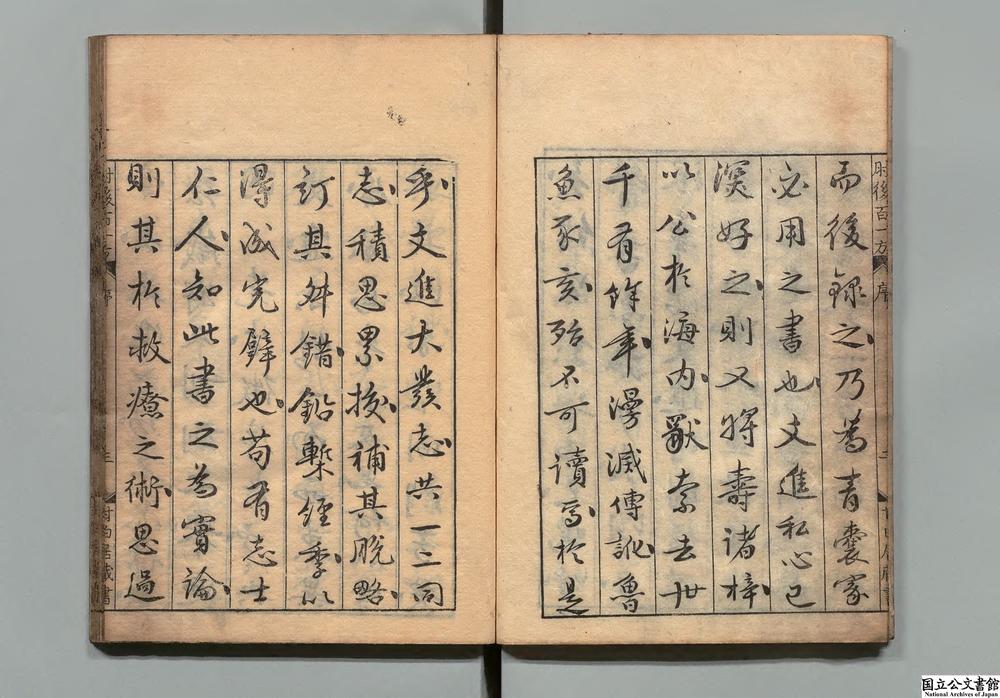 肘後百一方 序
而後錄之乃為青囊家
必用之書也文進私心已
深好之則又將壽諸梓
以公於海内獸索去世
千有餘年漫滅傳訛魯
魚豕亥殆不可讀焉於是
乎文進大發志共一二同
志積思累掞補其脫略
訂其舛錯鉛槧經季以
得成完璧也苟有志士
仁人知此書之為實論
則其於救療之術思過
肘後百一方 序
國立公文書館
National Archives of Japan